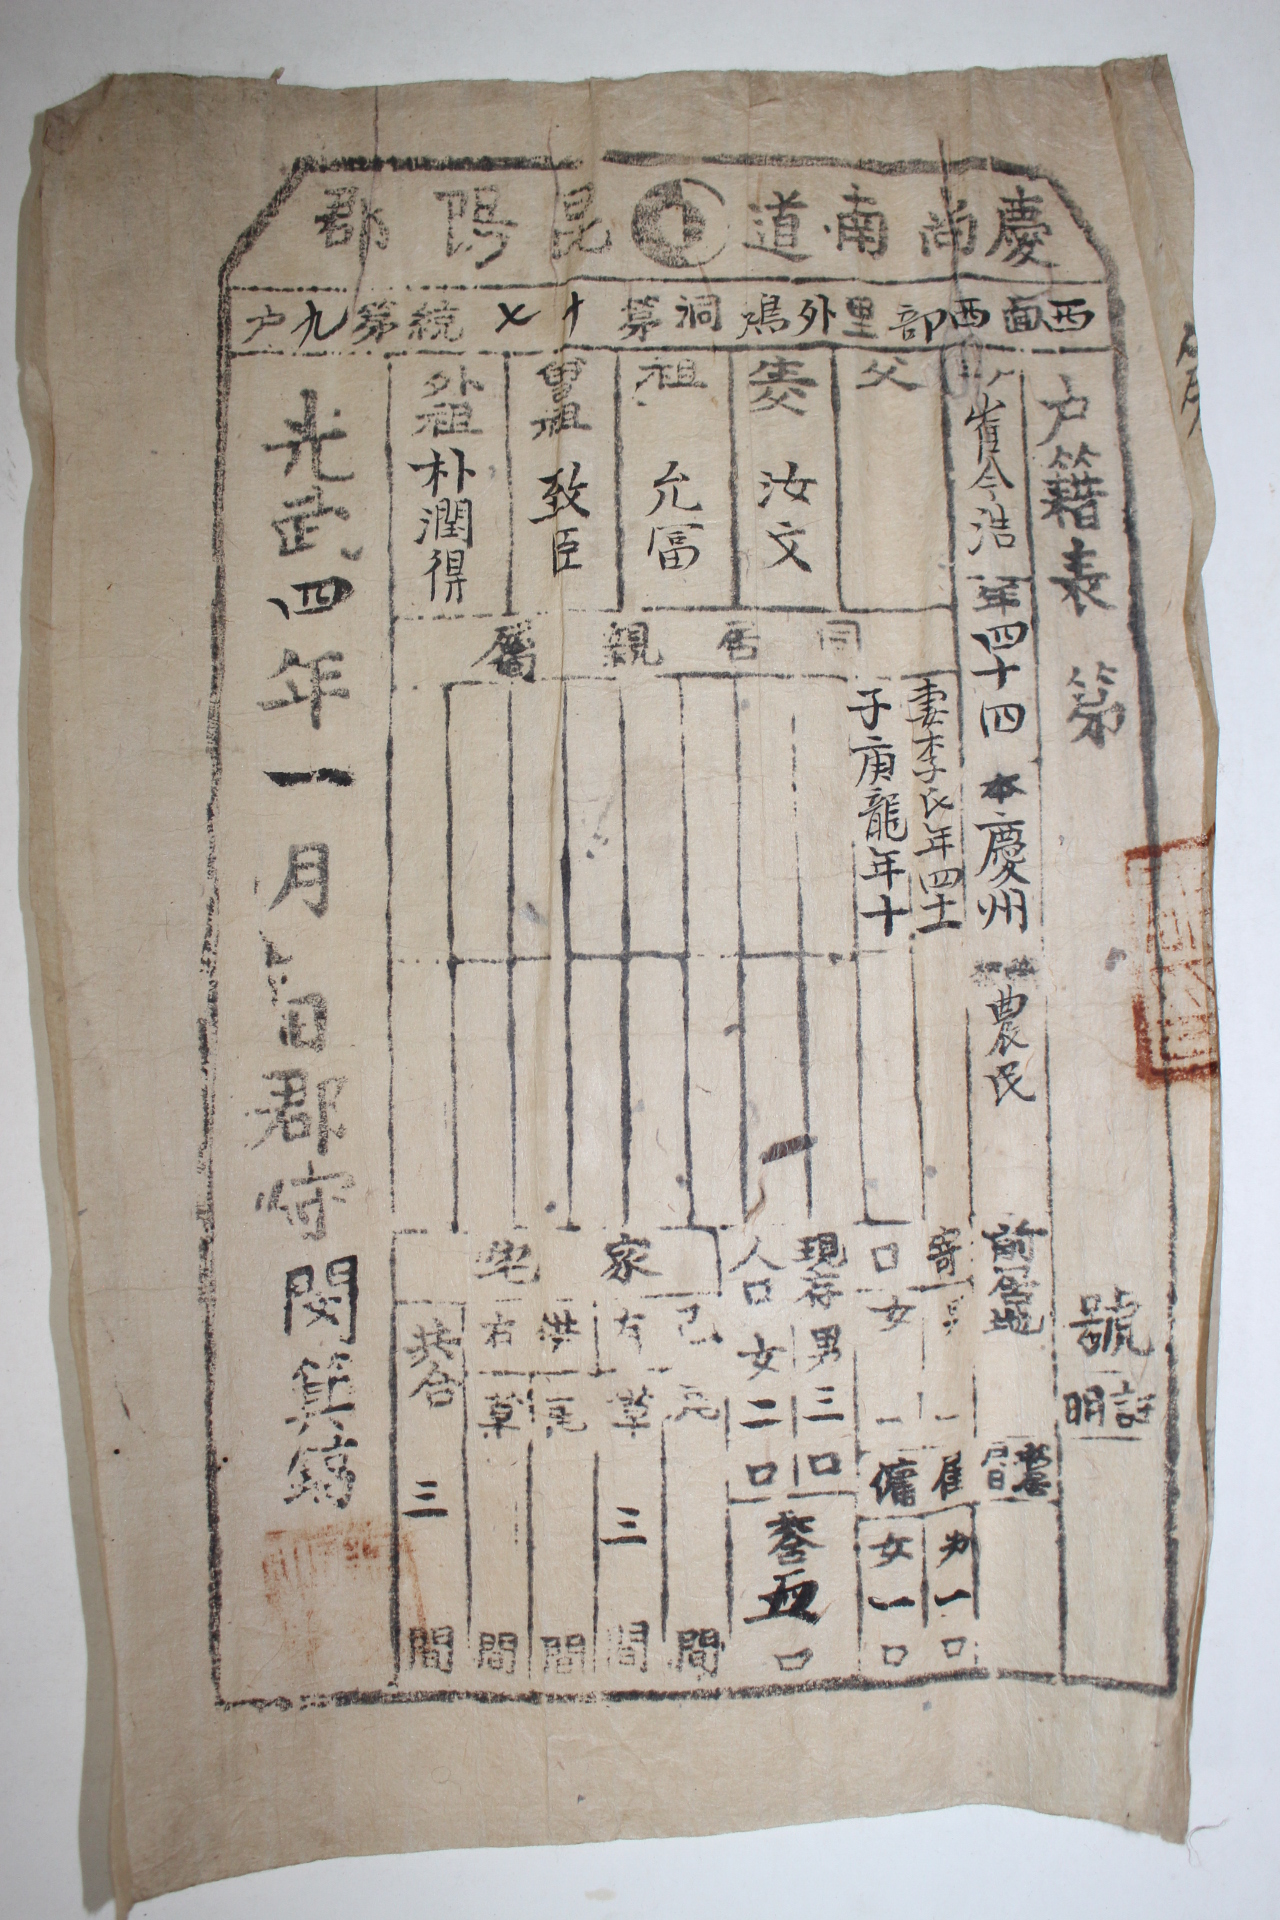 慶尙南道昆陽郡
西面西部里外鵄洞第十七統第九戶
戶籍表 第
號
証明
崔令浩
年四十四
本慶州
農民
前居地
移居月日
父
生父
汝文
祖
允富
曾祖
致臣
外祖
朴潤得
同居親屬
妻李氏年四十二
子庚龍年十
寄口
男
女
雇傭
男一口
女一口
現存人口
男三口
女二口
共合五口
家宅
己有
瓦
間
草三間
借有
瓦
間
草
間
共合三間
光武四年一月 日郡守閔箕鎬